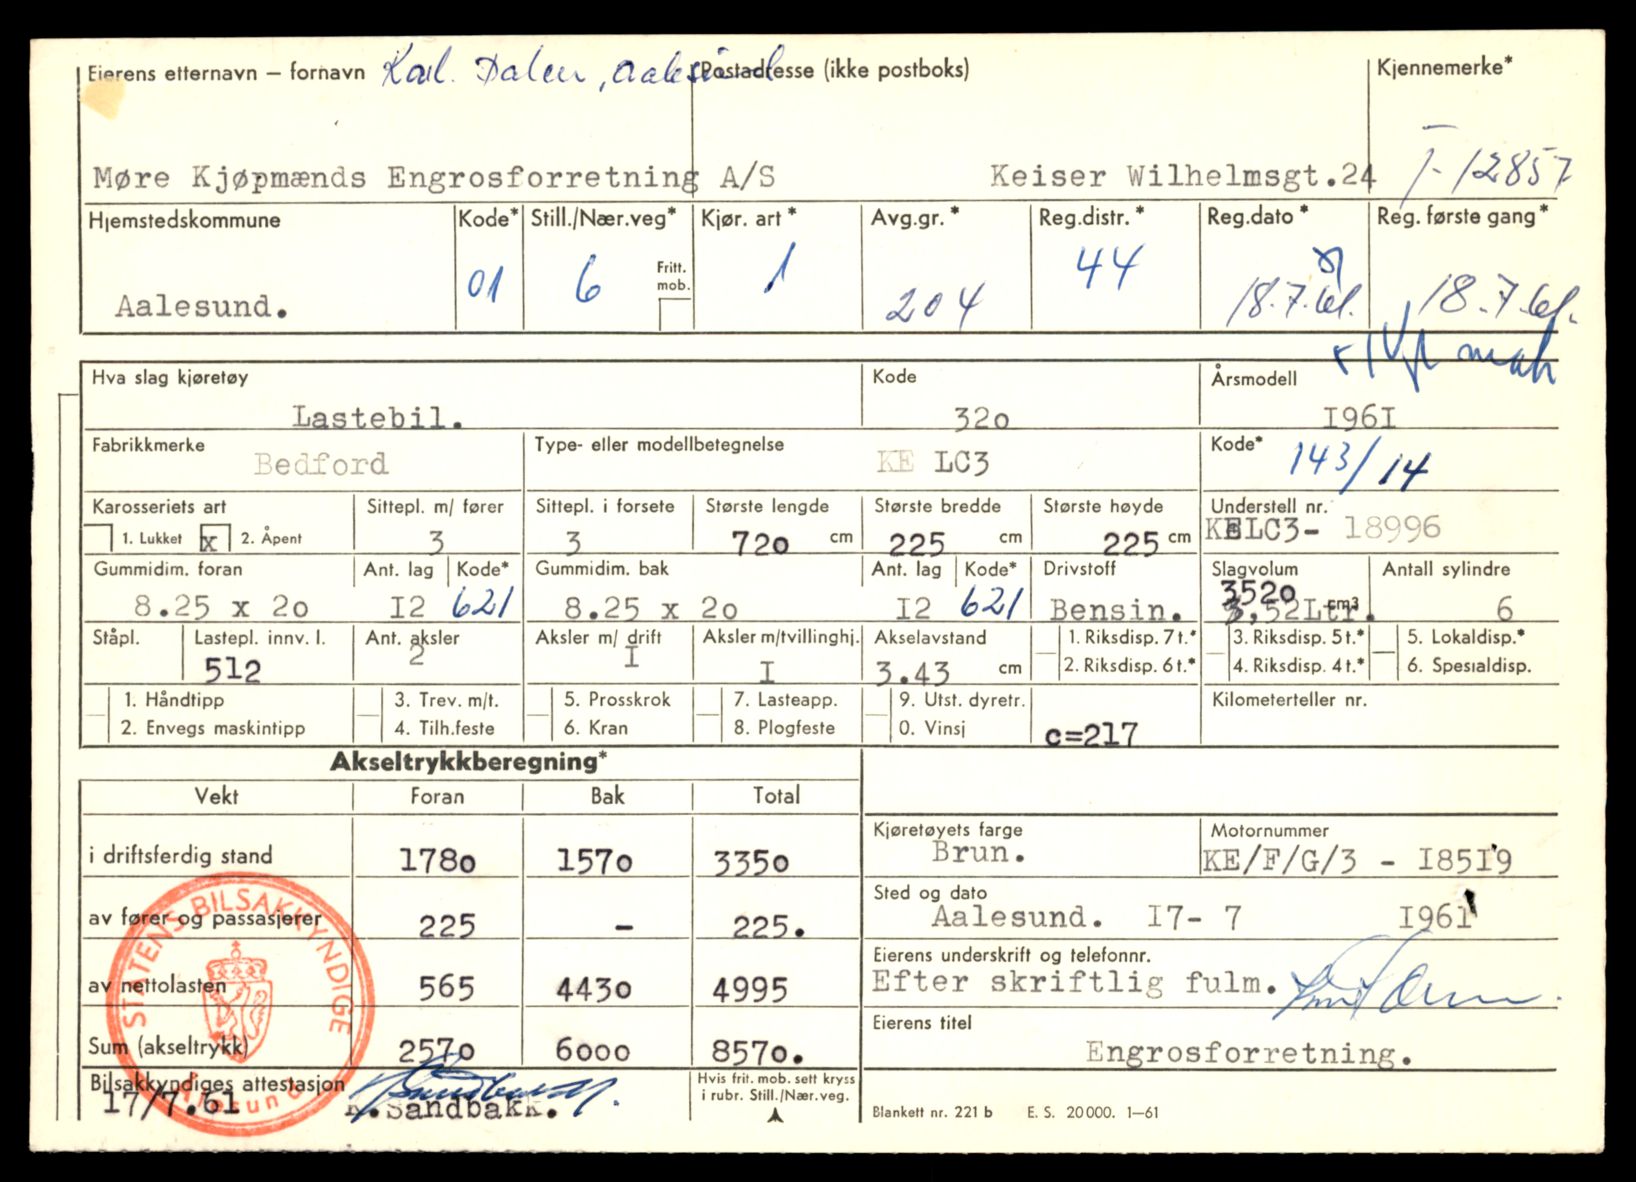 Eierens etternavn – fornavn Karl. Dalen, Aalesund Postadresse (ikke postboks) Kjennemerke*
Møre Kjøpmænds Engrosforretning A/S Keiser Wilhelmsgt.24 T-12857
Hjemstedskommune Kode* Still./Nær.veg* Kjør. art * Avg.gr. * Reg.distr. * Reg.dato * Reg. første gang*
Aalesund. 01 6 Fritt. mob. 1 204 44 18.7.61. 18.7.61.
Hva slag kjøretøy Kode Årsmodell
Lastebil. 32o I96I
Fabrikkmerke Type- eller modellbetegnelse Kode*
Bedford KE LC3 143/14
Karosseriets art Sittepl. m/ fører Sittepl. i forsete Største lengde Største bredde Største høyde Understell nr.
1. Lukket x 2. Åpent 3 3 72o cm 225 cm 225 cm KELC3- 18996
Gummidim. foran Ant. lag Kode* Gummidim. bak Ant. lag Kode* Drivstoff Slagvolum Antall sylindre
352o
8.25 x 2o I2 621 8.25 x 2o I2 621 Bensin. 3,52Ltr. cm3 6
Ståpl. Lastepl. innv. l. Ant. aksler Aksler m/ drift Aksler m/tvillinghj. Akselavstand 1. Riksdisp. 7 t.* 3. Riksdisp. 5 t.* 5. Lokaldisp.*
512 2 I I 3.43 cm 2. Riksdisp. 6 t.* 4. Riksdisp. 4 t.* 6. Spesialdisp.
1. Håndtipp 3. Trev. m/t. 5. Prosskrok 7. Lasteapp. 9. Utst. dyretr. Kilometerteller nr.
2. Envegs maskintipp 4. Tilh.feste 6. Kran 8. Plogfeste 0. Vinsj c=217
Akseltrykkberegning*
Vekt Foran Bak Total
i driftsferdig stand 178o 157o 335o
av fører og passasjerer 225 - 225.
av nettolasten 565 443o 4995
Sum (akseltrykk) 257o 6ooo 857o.
Bilsakkyndiges attestasjon
17/7.61 K.Sandbakk.
Hvis frit. mob. sett kryss
i rubr. Still./Nær.veg.
STATENS BILSAKKYNDIGE
Ålesund
Kjøretøyets farge Motornummer
Brun. KE/F/G/3 - I85I9
Sted og dato
Aalesund. I7- 7 I961
Eierens underskrift og telefonnr.
Efter skriftlig fulm.
Eierens titel
Engrosforretning.
Blankett nr. 221 b E. S. 20 000. 1–61